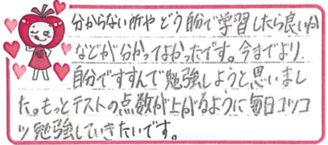 分からない所やどう自分で学習したら良いか
などが分かってよかったです。今までより、
自分ですすんで勉強しようと思いまし
た。もっとテストの点数が上がるように毎日コツコ
ツ勉強していきたいです。